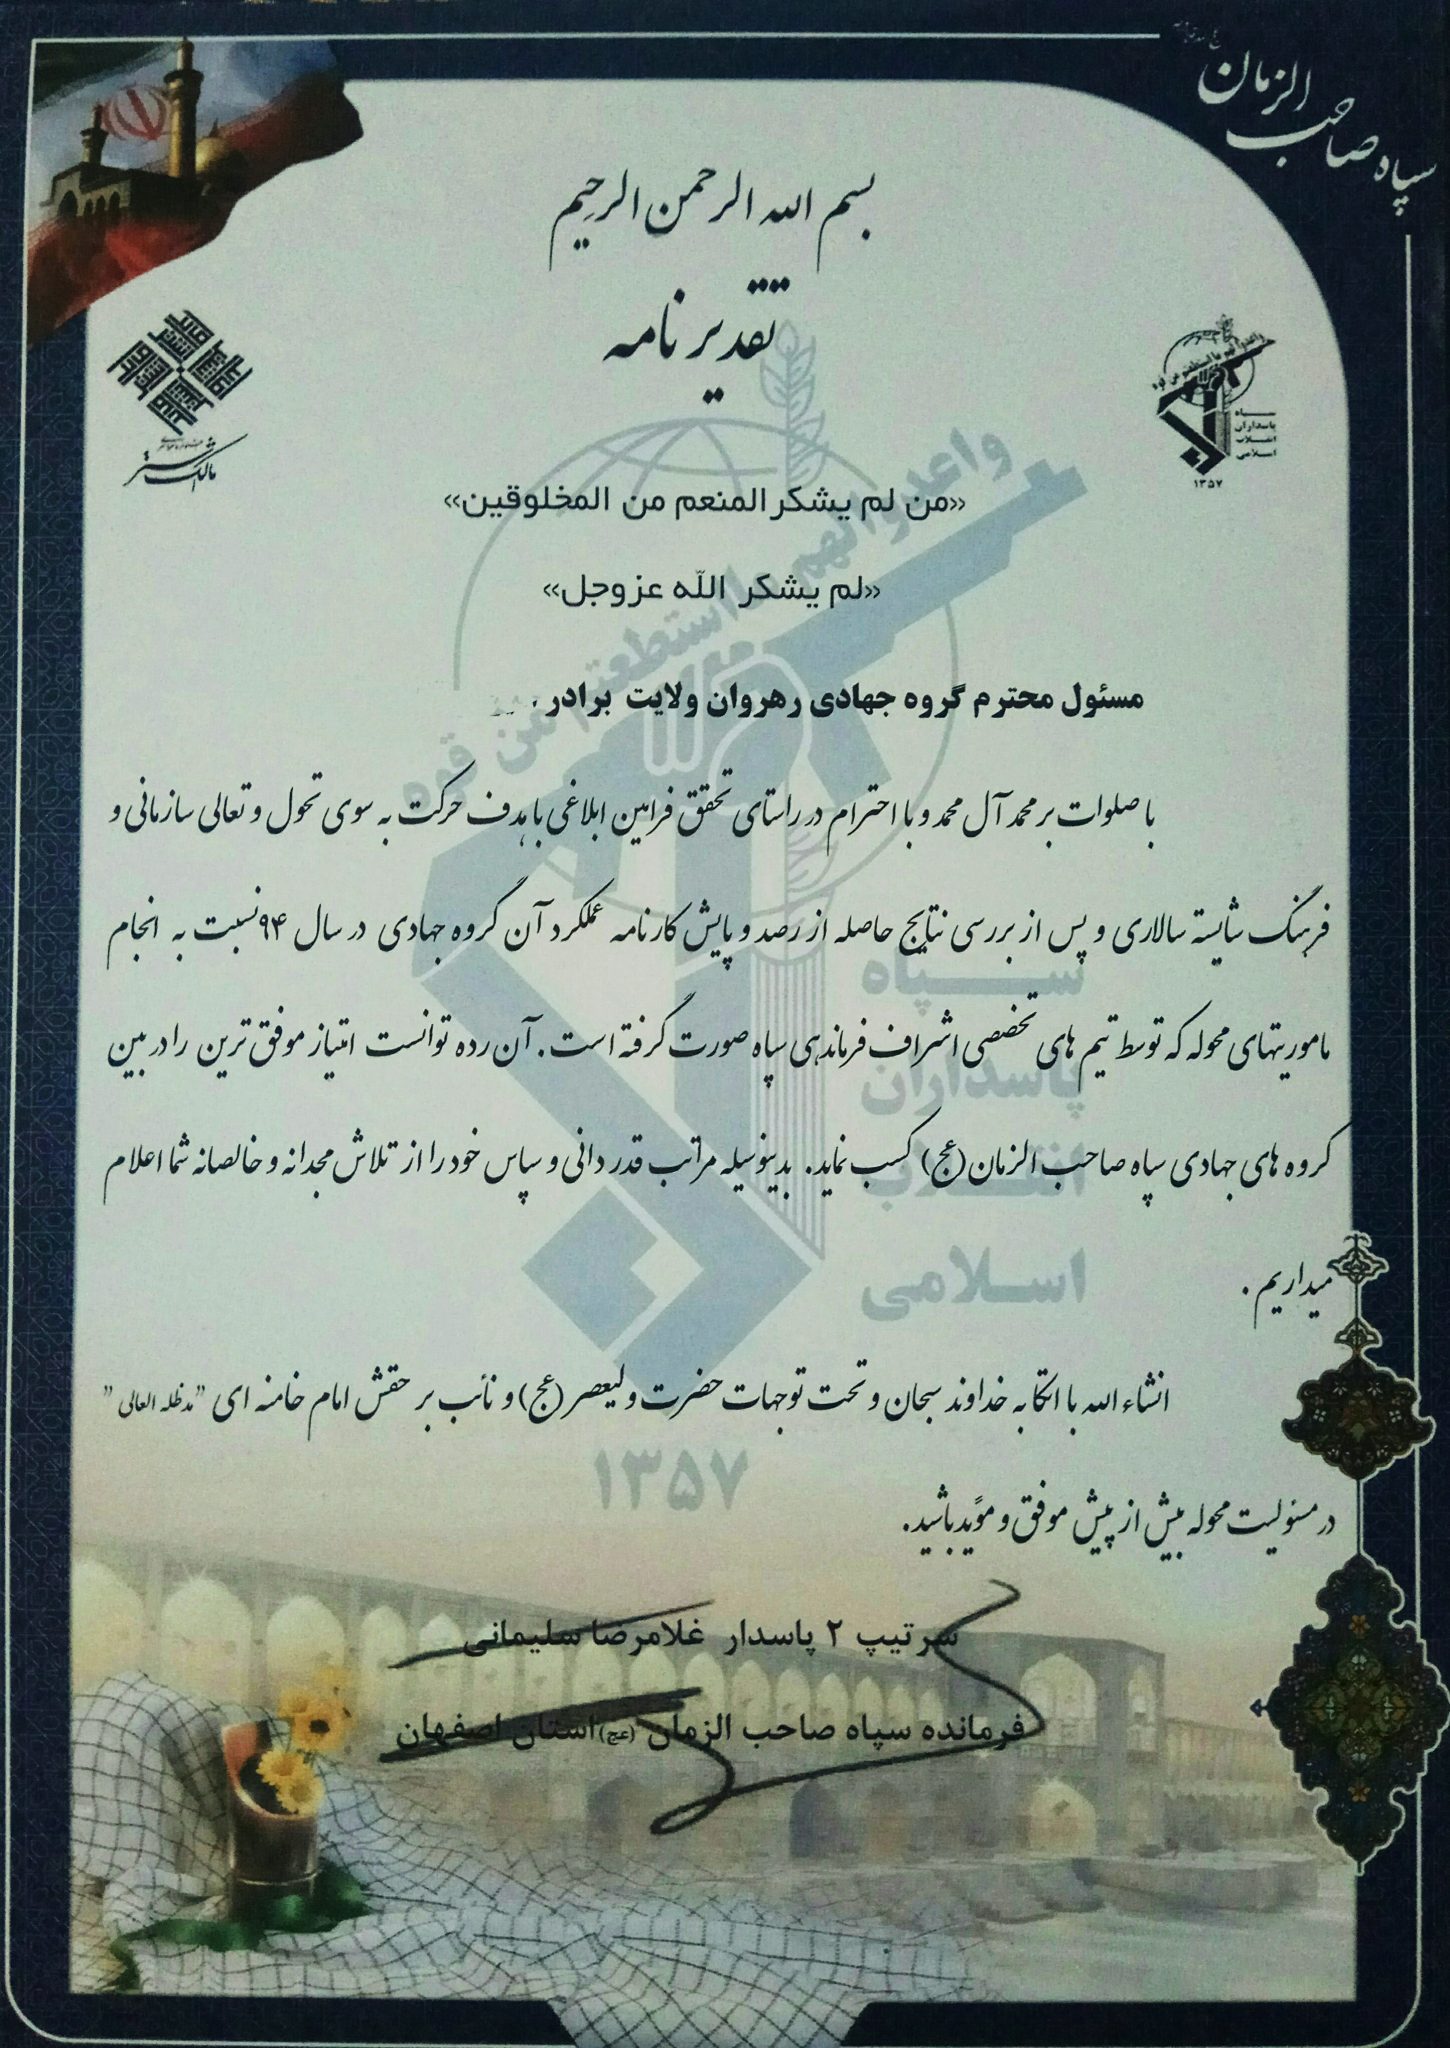 سپاه صاحب الزمان
بسم الله الرحمن الرحیم
تقدیرنامه
مالک اشتر
سپاه
پاسداران
انقلاب
اسلامی
۱۳۵۷
«من لم یشکر المنعم من المخلوقین»
«لم یشکر اللّه عزوجل»
مسئول محترم گروه جهادی رهروان ولایت برادر
با صلوات بر محمد آل محمد و با احترام در راستای تحقق فرامین ابلاغی با هدف حرکت به سوی تحول و تعالی سازمانی و
فرهنگ شایسته سالاری و پس از بررسی نتایج حاصله از رصد و پایش کارنامه عملکرد آن گروه جهادی در سال ۹۴ نسبت به انجام
ماموریتهای محوله که توسط تیم های تخصصی اشراف فرماندهی سپاه صورت گرفته است. آن رده توانست امتیاز موفق ترین را در بین
گروه های جهادی سپاه صاحب الزمان (عج) کسب نماید. بدینوسیله مراتب قدردانی و سپاس خود را از تلاش مجدانه و خالصانه شما اعلام
میداریم.
انشاء الله با اتکا به خداوند سبحان و تحت توجهات حضرت ولیعصر (عج) و نائب بر حقش امام خامنه ای "مدظله العالی"
در مسئولیت محوله بیش از پیش موفق و مؤید باشید.
سرتیپ ۲ پاسدار غلامرضا سلیمانی
فرمانده سپاه صاحب الزمان (عج) استان اصفهان
واعدوا لهم ما استطعتم من قوه
سپاه
پاسداران
انقلاب
اسلامی
۱۳۵۷